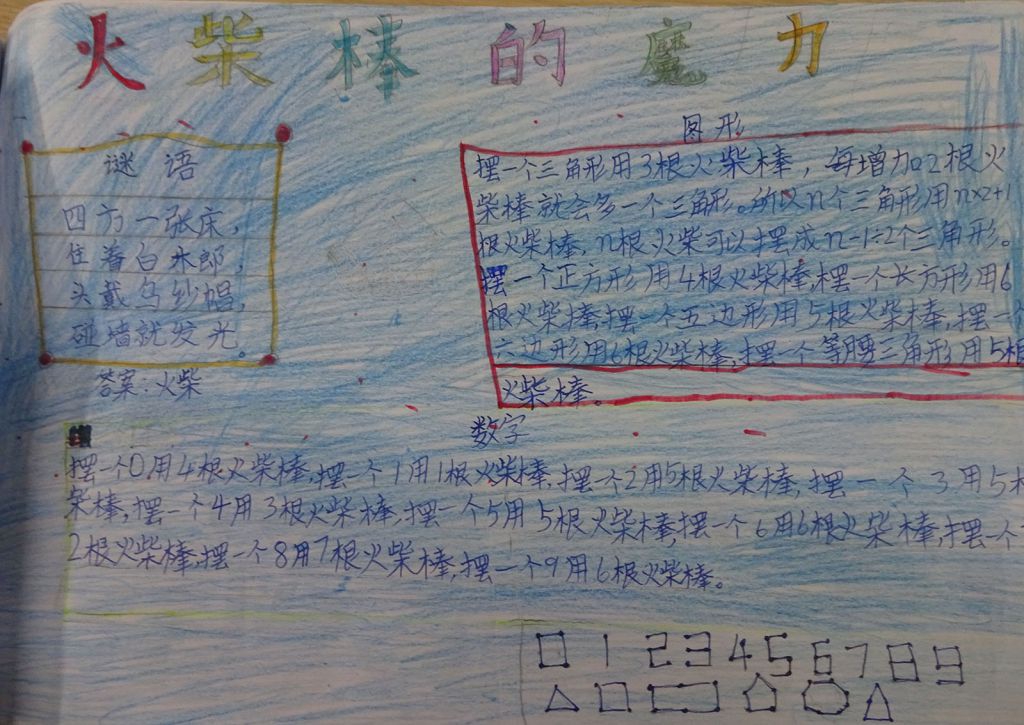 火柴棒的魔力
谜语
四方一张床，
住着白木郎，
头戴乌纱帽，
碰墙就发光。
答案：火柴
图形
摆一个三角形用3根火柴棒，每增加2根火
柴棒就会多一个三角形。所以n个三角形用n×2+1
根火柴棒，n根火柴可以摆成n-1÷2个三角形。
摆一个正方形用4根火柴棒，摆一个长方形用6
根火柴棒，摆一个五边形用5根火柴棒，摆一个
六边形用6根火柴棒，摆一个等腰三角形用5根
火柴棒。
数字
摆一个0用4根火柴棒，摆一个1用1根火柴棒，摆一个2用5根火柴棒，摆一个3用5根
柴棒，摆一个4用3根火柴棒，摆一个5用5根火柴棒，摆一个6用6根火柴棒，摆一个
2根火柴棒，摆一个8用7根火柴棒，摆一个9用6根火柴棒。
0 1 2 3 4 5 6 7 8 9